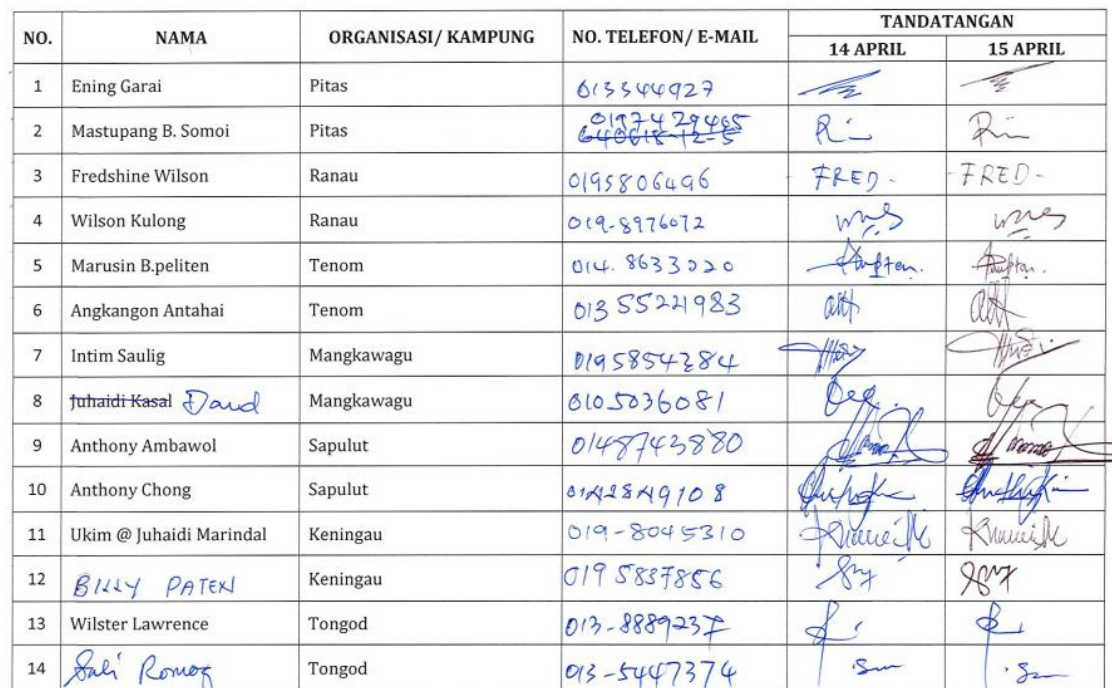 NO. NAMA ORGANISASI/ KAMPUNG NO. TELEFON/ E-MAIL TANDATANGAN
14 APRIL 15 APRIL
1 Ening Garai Pitas 013544927
2 Mastupang B. Somoi Pitas 0197429465
3 Fredshine Wilson Ranau 0195806496 FRED - FRED -
4 Wilson Kulong Ranau 019-8976072
5 Marusin B.peliten Tenom 014. 8633220
6 Angkangon Antahai Tenom 013 55221983
7 Intim Saulig Mangkawagu 0195854284
8 Juhaidi Kasal David Mangkawagu 0105036081
9 Anthony Ambawol Sapulut 0148743880
10 Anthony Chong Sapulut
11 Ukim @ Juhaidi Marindal Keningau 019-8045310
12 BILLY PATEN Keningau 019 5837856
13 Wilster Lawrence Tongod 013-8889237
14 Tongod 013-5447374